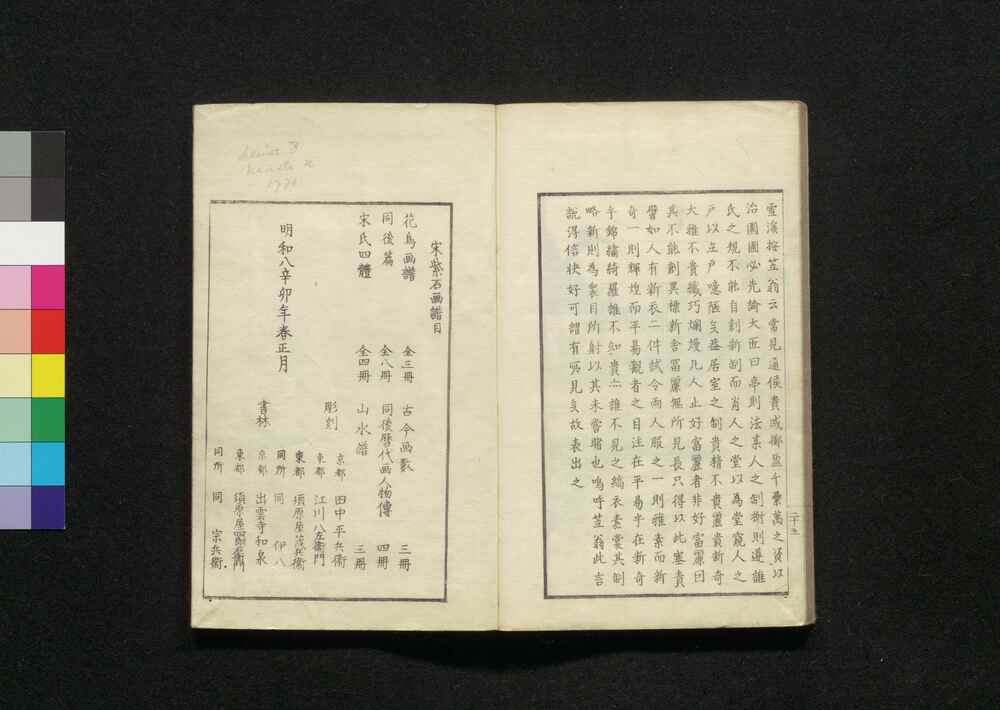 雪溪按笠翁云常見通侯貴戚擲盈千累萬之資以
治園圃必先諭大匠曰亭則法某人之制榭則遵誰
氏之規不能自創新制而肖人之堂以為堂窺人之
戶以立戶嘻陋矣盖居室之制貴精不貴麗貴新奇
大雅不貴纖巧爛熳凡人止好富麗者非好富麗因
其不能創異標新舎冨麗無所見長只得以此塞責
譬如人有新衣二件試令両人服之一則雅素而新
奇一則輝煌而平易觀者之目注在平易乎在新奇
乎錦繡綺羅誰不知貴亦誰不見之縞衣素裳其制
略新則為衆目所射以其未嘗睹也嗚呼笠翁此言
說得信快好可謂有所見矣故表出之
二十五
宋紫石画譜目
花鳥画譜 全三冊 古今画藪 三冊
同後篇 全八冊 同後歴代画人物傳 四冊
宋氏四體 全四冊 山水譜 三冊
彫刻 京都 田中平兵衛
東都 江川八左衛門
明和八辛卯年春正月
書林 東都 須原屋茂兵衛
同所 同 伊八
京都 出雲寺和泉
東都 須原屋
同所 同 宗兵衛
1771